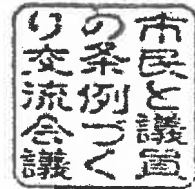 市民と議員
の条例づく
り交流会議